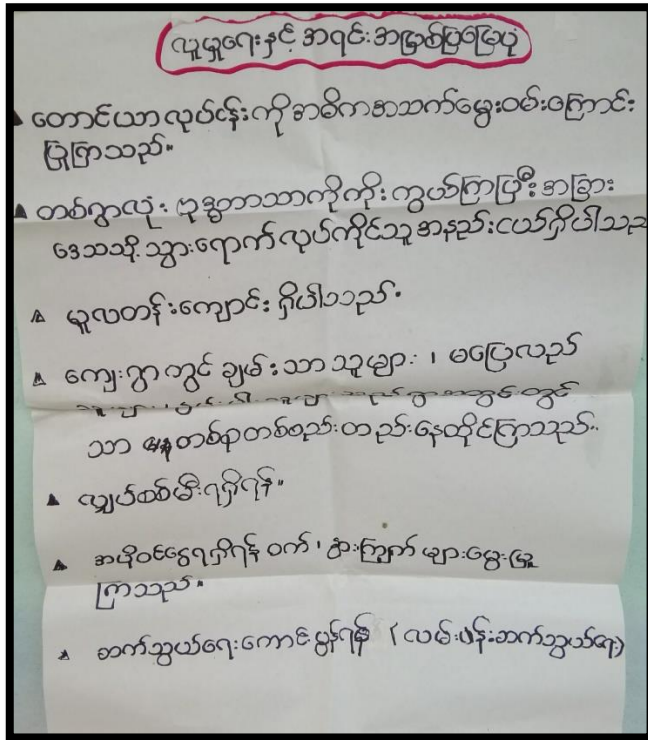 လူမှုရေးနှင့် အရင်းအမြစ်ပြမြေပုံ
တောင်ယာလုပ်ငန်းကို အဓိကအသက်မွေးဝမ်းကြောင်း
ပြုကြသည်။
တစ်ရွာလုံး ဗုဒ္ဓဘာသာကိုကိုးကွယ်ကြပြီး အခြား
ဒေသသို့ သွားရောက်လုပ်ကိုင်သူ အနည်းငယ်ရှိပါသည်
မူလတန်းကျောင်း ရှိပါသည်။
ကျေးရွာတွင် ချမ်းသာသူများ ၊ မပြေလည်
သာ တစ်ရာတစ်စည်းတည်းနေထိုင်ကြသည်။
လျှပ်စစ်မီးရရှိရန်။
အပိုဝင်ငွေရရှိရန် ဝက် ၊ နွား၊ကြက် များမွေးမြူ
ကြသည်။
ဆက်သွယ်ရေးကောင်းမွန်ရန် (လမ်းပန်းဆက်သွယ်ရေး)